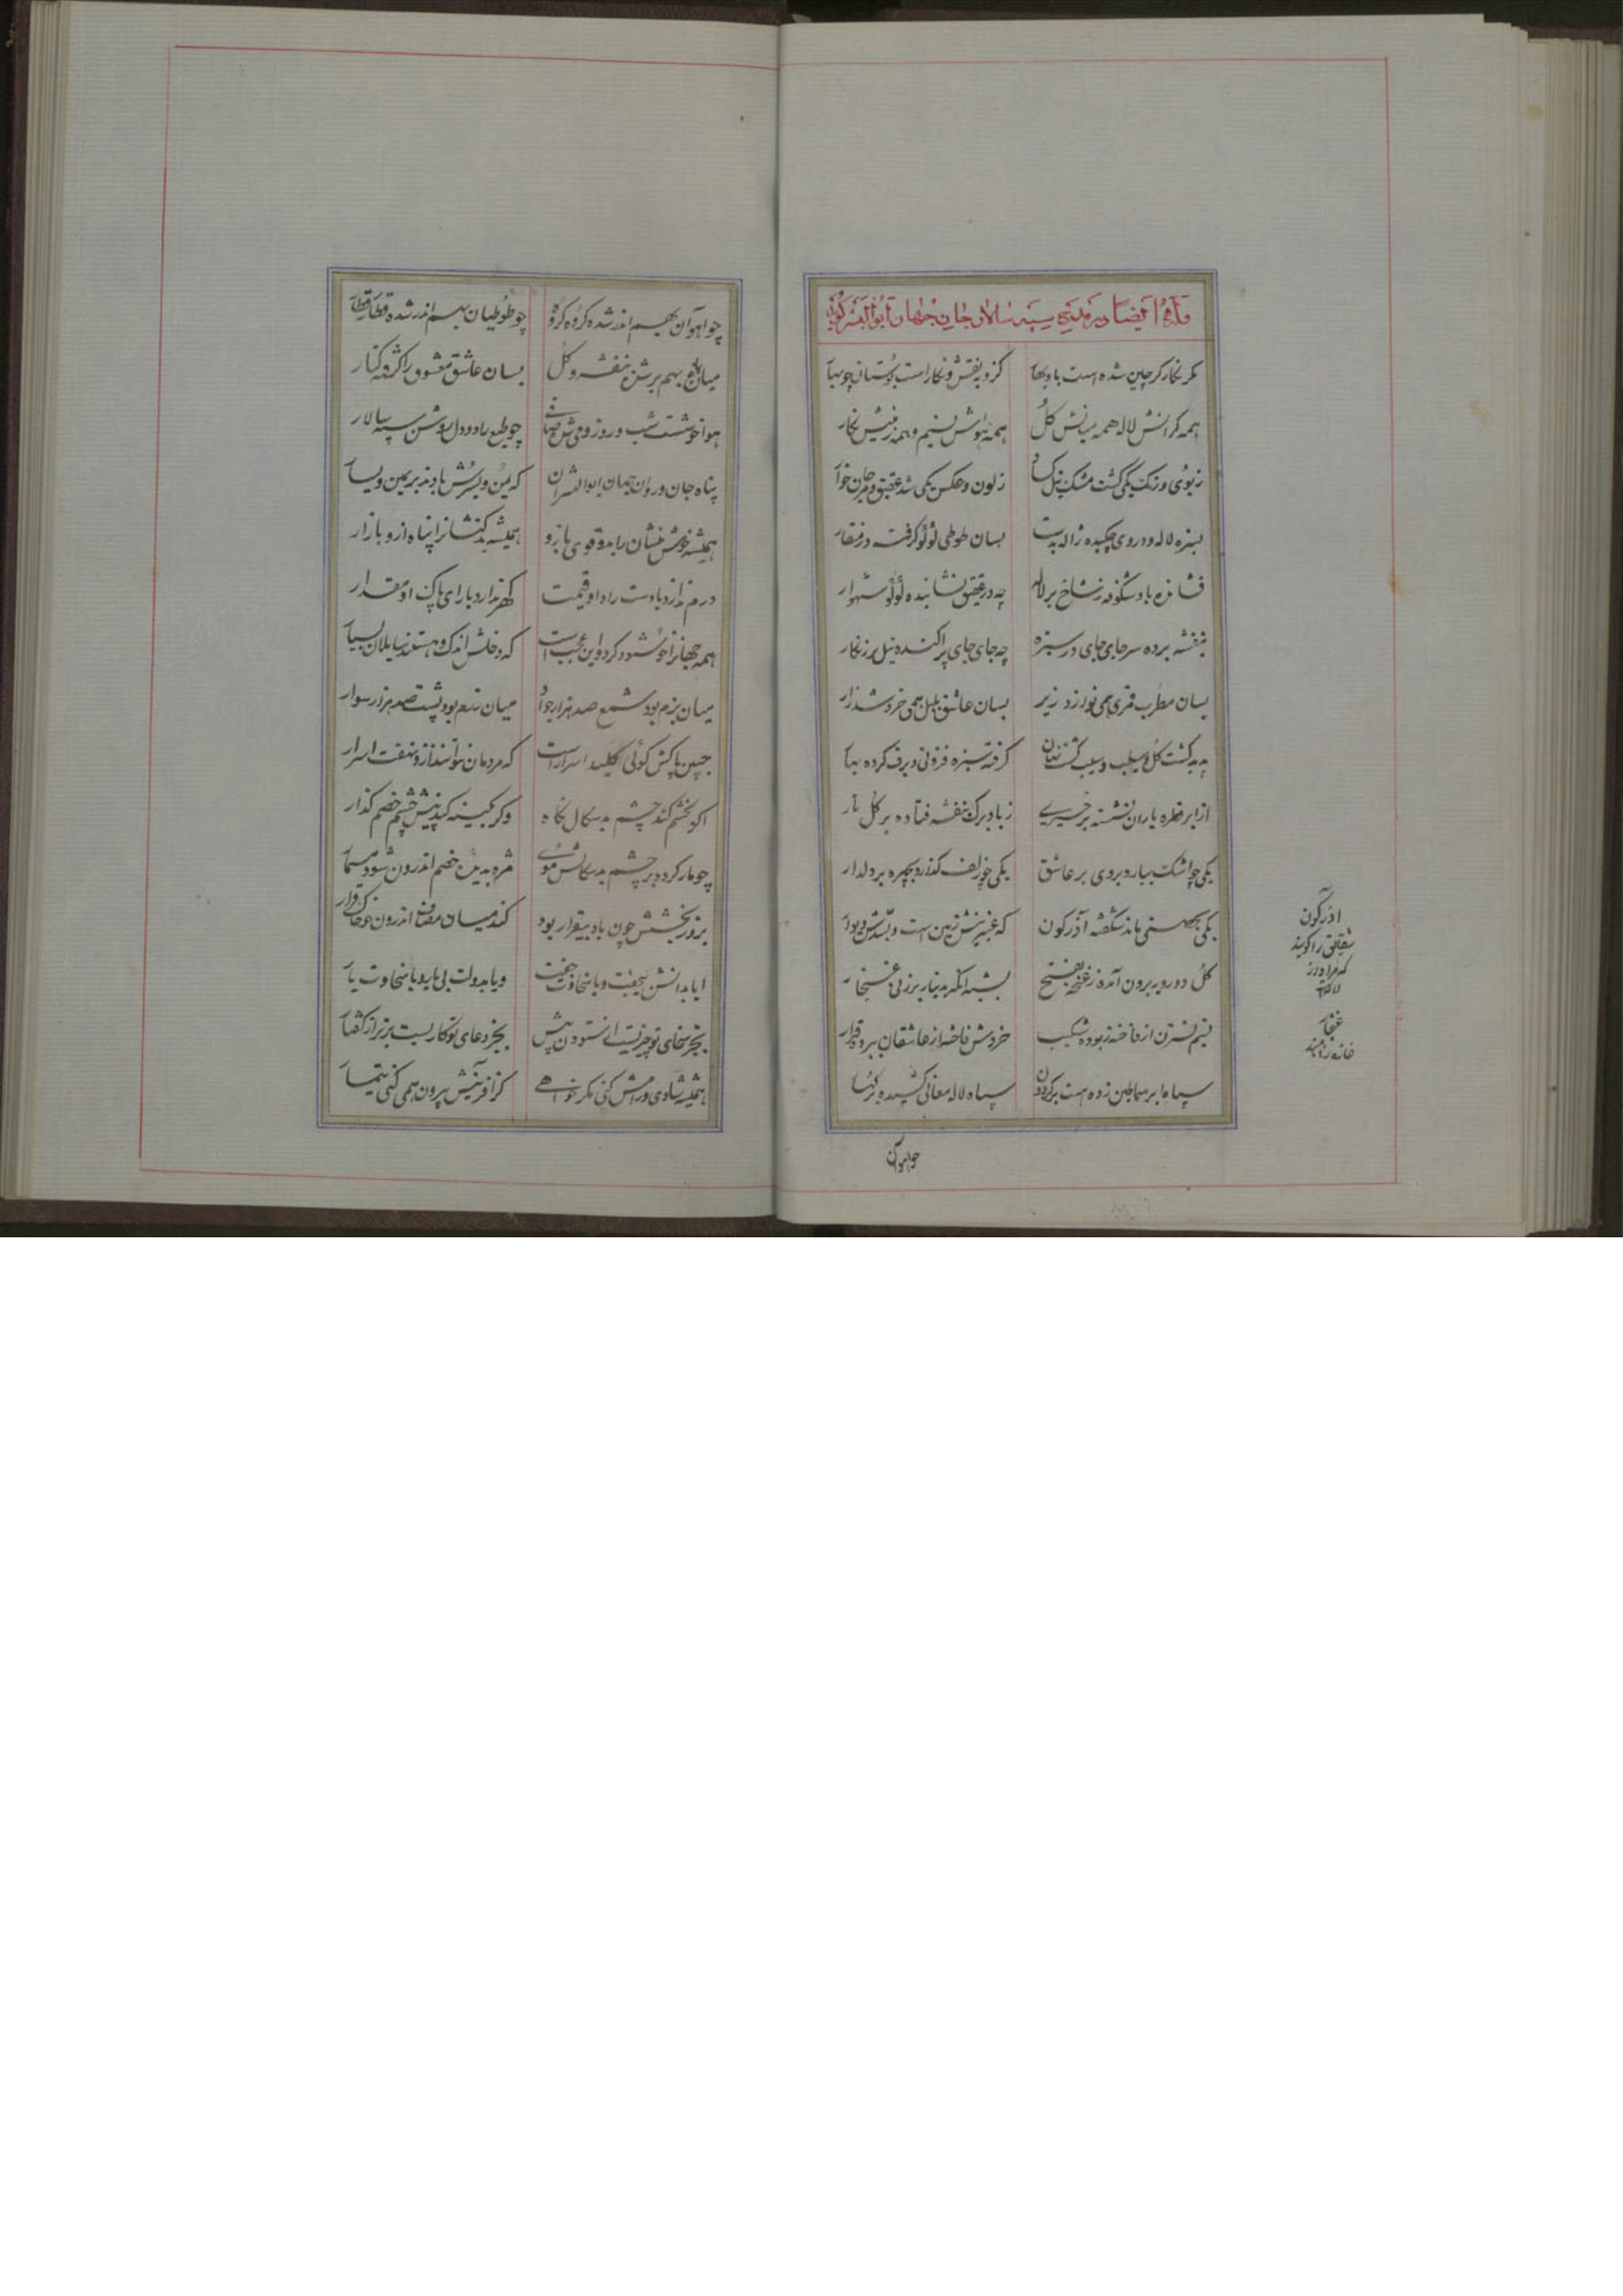 وله ایضا در مدیح سپه سالار جان جهان ابوالیسر گوید
مگر نگارگر چین شده است باد بهار گزو بنقش و نگار است بوستان چو بهار
همه کرانش لاله همه میانش گل همه هواش نسیم و همه زمینش نگار
زبوی و رنگ یکی گشت مشک نیل کساد زلون و عکس یکی شد عقیق و مرجان خوار
بسبزه لاله و در وی چکیده ژاله بدست بسان طوطی لؤلؤ گرفته در منقار
فشانده باد شکوفه ز شاخ بر لاله چه در عقیق نشانیده لؤلؤ شهوار
بنفشه برده سر جای جای در سبزه چه جای جای پراکنده نیل بر زنگار
بسان مطرب قمری همی نوازد زیر بسان عاشق بلبل همی خروشد زار
پدید گشت گل و سیب و سیب گشت نهان گرفته سبزه فزونی و برف کرده
از ابر قطره باران نشسته بر خیری ز باد برک بنفشه فتاده بر گل نار
یکی چو اشک ببارد بروی بر عاشق یکی چو زلف گذارد بچهره بر دلدار
یکی بحصنی ماند شکفته آذرگون که عنبرینش زمین است و بسدین دیوار
گل دورویه برون آمده ز غنچه بفتح بسته انکه بدینار برزنی غنجار
نسیم نسترن از فاخته ربوده شکیب خروش فاخته از عاشقان ببرده قرار
سپاه ابر سماطین زده است بر گردون سپاه لاله معانی کشیده بر کهسار
اذرگون
شقایق را گویند
که
لاله
غنجار
غازه را نامند
چو آهوان
چو آهوان بهم اندر شده گروه گروه چو طوطیان بهم اندر شده قطار قطار
میان باغ بهم بر شده بنفشه و گل بسان عاشق معشوق را گرفته کنار
هوا خوشست شب و روز روشن صافی چو طبع راد و دل روشن سپه سالار
پناه جان و روان جهان ابوالیسر آن که یمن و یسرش دادند بر یمین و یسار
همیشه خوش منشان را بدو قوی بازو همیشه بدکنشان را تباه ازو بازار
درم ندارد با دست راد او قیمت گهر ندارد با رای پاک او مقدار
همه جهان را خوشنود کرد و این عجب است که دخلش اندک و هستند سایلان بسیار
میان بزم بود شمع صد هزار جواد میان رزم بود پشت صد هزار سوار
جبین پاکش گوئی کلید اسرار است که مردمان نتوانند ازو نهفت اسرار
اگر بخشم کند چشم بدسگال نگاه وگر بکینه کند پیش چشم خصم گذار
چو مار گردد بر چشم بدسگالش موی مژه بدیده خصم اندرون شود مسمار
بروز بخشش چون باد بیقرار بود کند میان مصاف اندرون چو خاک قرار
ایا بدانش بیجفت و با سخاوت جفت و یا بدولت بی یار و با سخاوت یار
بجز سخای تو چیز نیست از ستودن بیش بجز دعای تو کار نیست برتر از گفتار
همیشه شادی و رامش کنی مگر خواهی کز آفرینش بیرون همی کنی تیمار